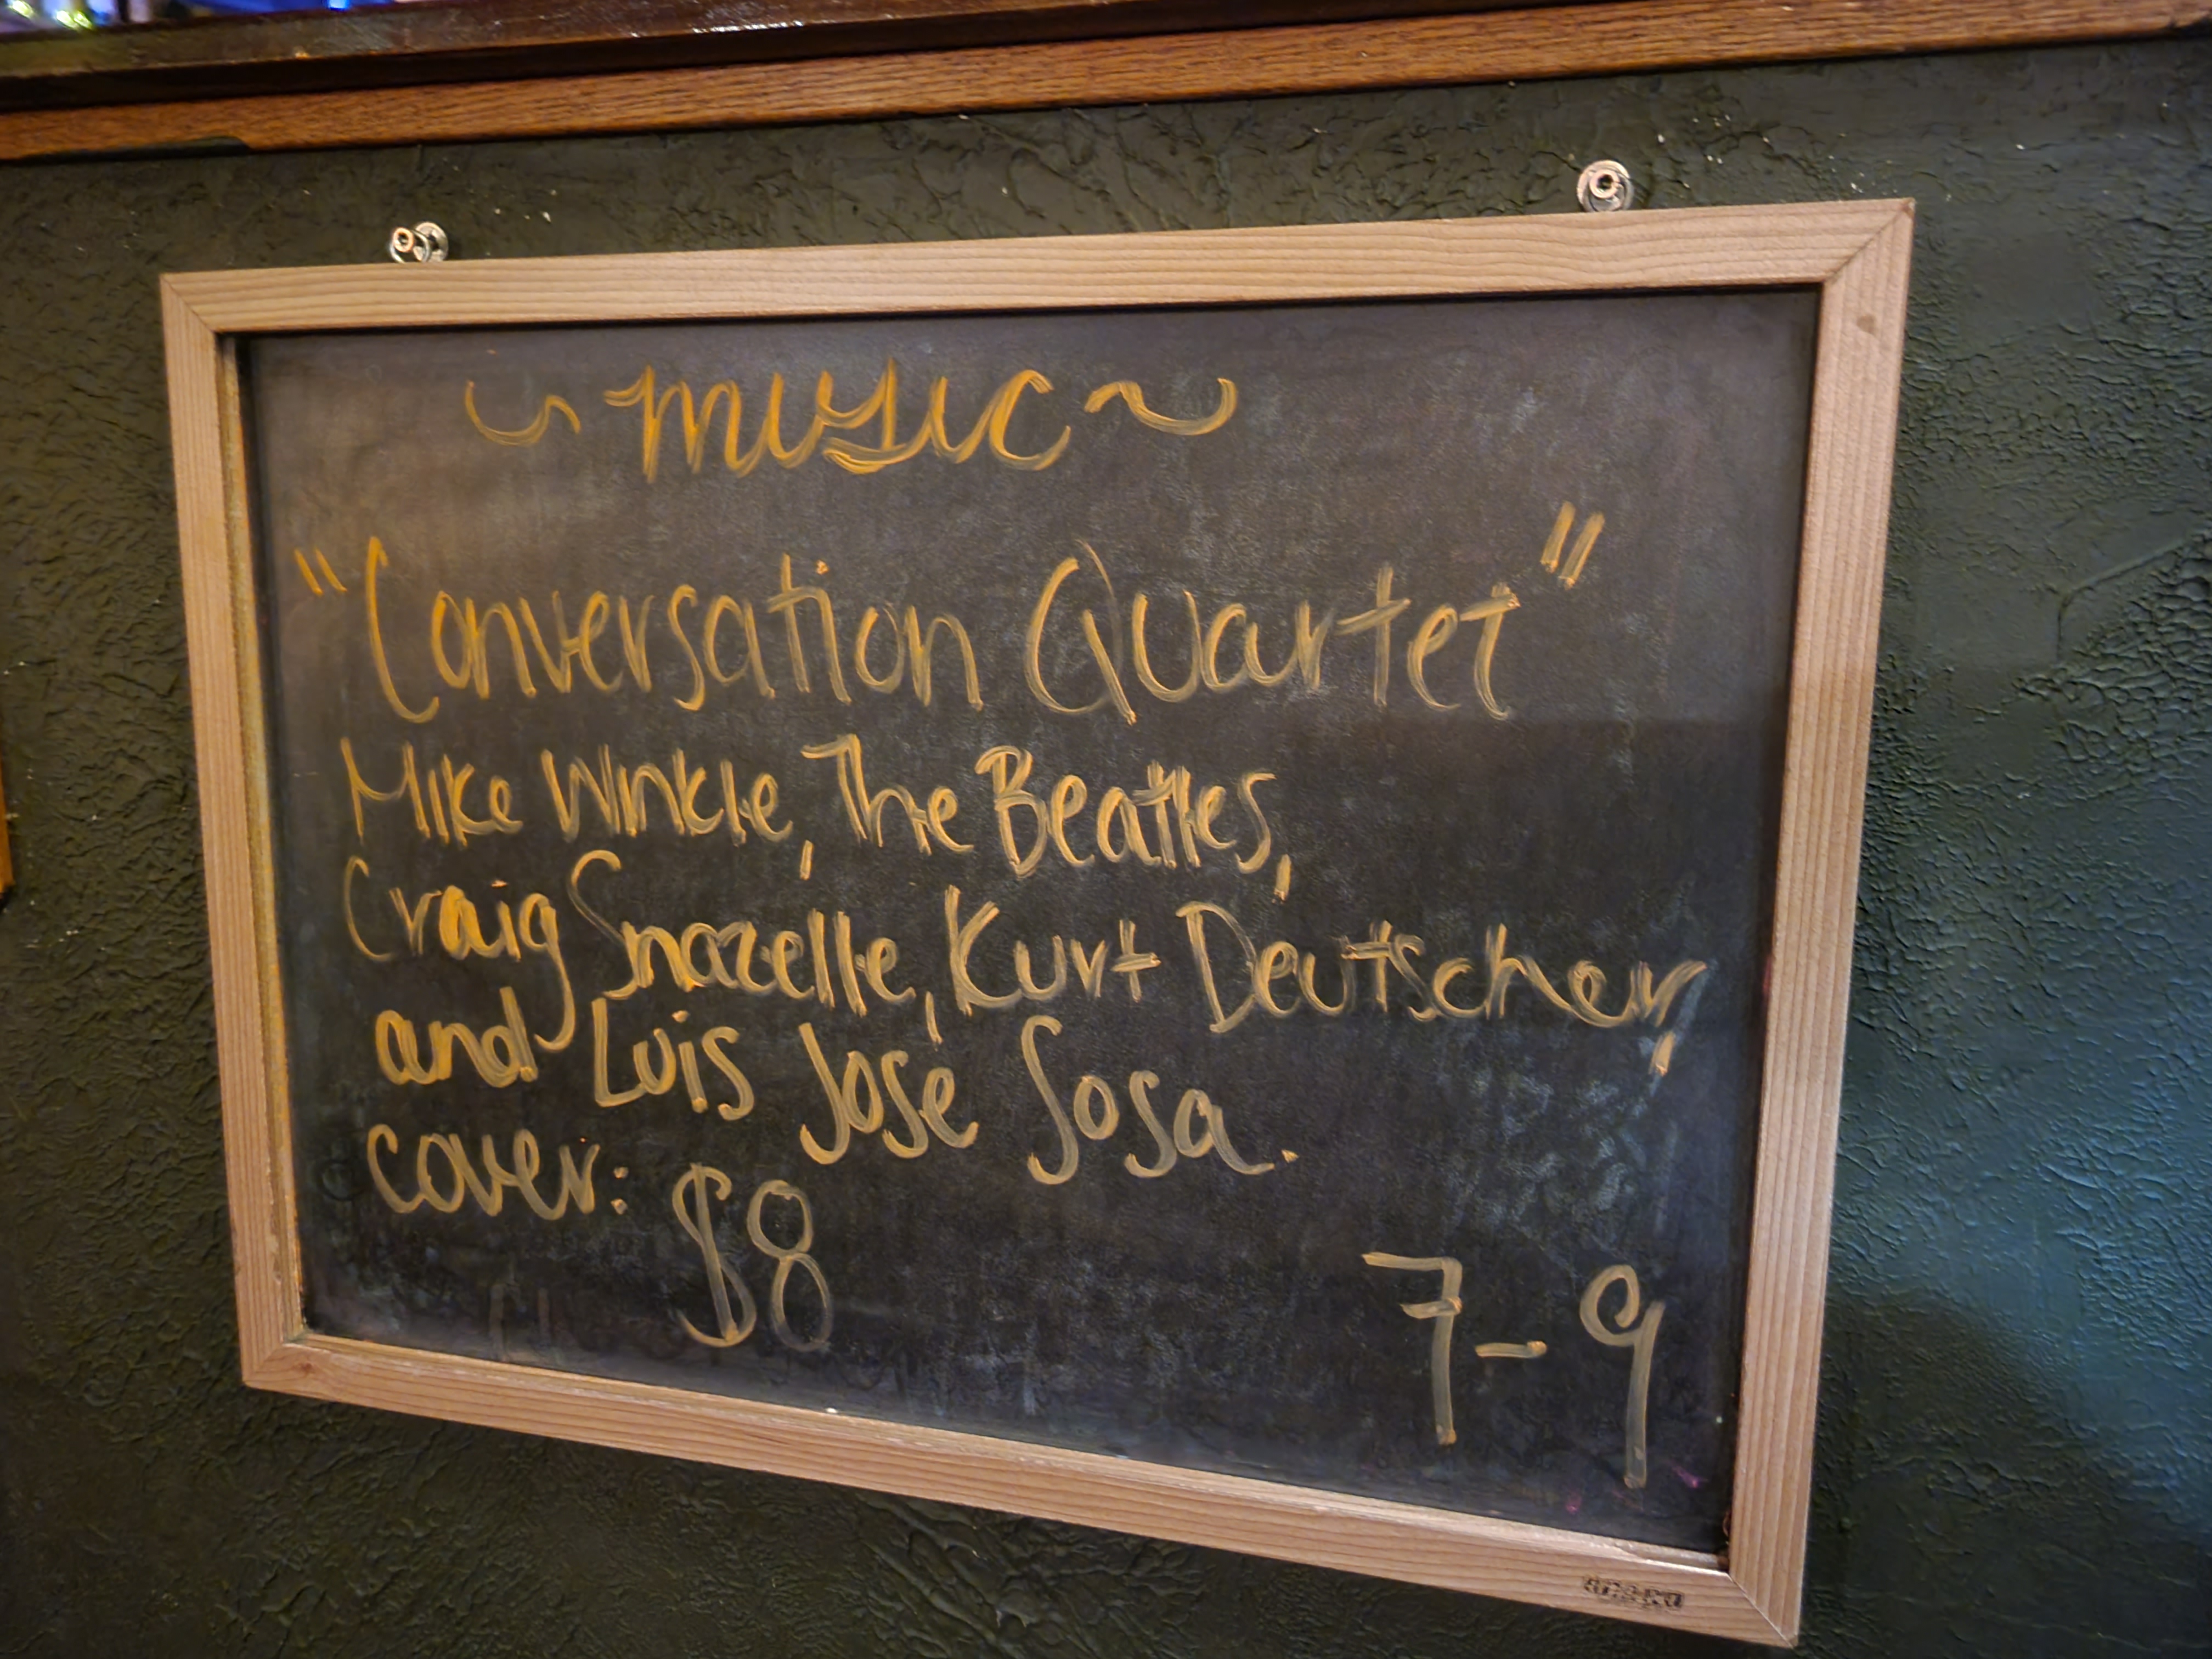 ~ music ~
"Conversation Quartet"
Mike Winkle, The Beatles,
Craig Snazelle, Kurt Deutscher,
and Luis José Sosa.
cover: $8
7-9